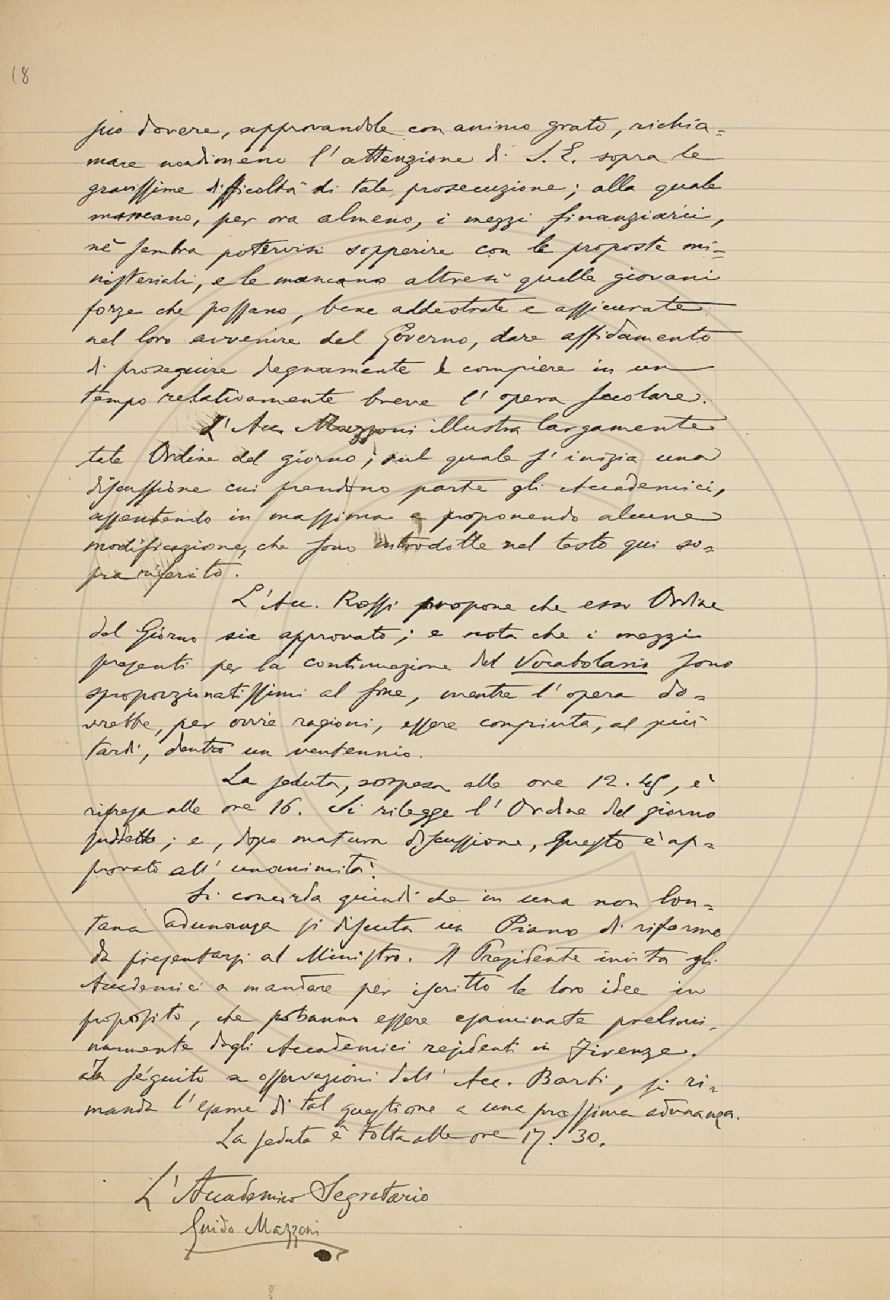 18
suo dovere, approvandole con animo grato, richia=
mare nondimeno l'attenzione di S. E. sopra le
gravissime difficoltà di tale prosecuzione; alla quale
mancano, per ora almeno, i mezzi finanziarii,
nè sembra potervisi sopperire con le proposte mi=
nisteriali, e le mancano altresì quelle giovani
forze che possano, bene addestrate e assicurate
nel loro avvenire del Governo, dare affidamento
di proseguire degnamente e compiere in un
tempo relativamente breve l'opera secolare.
L'Acc. Mazzoni illustra largamente
tale Ordine del giorno; sul quale s'inizia una
discussione cui prendono parte gli Accademici,
assentendo in massima e proponendo alcune
modificazione, che sono introdotte nel testo qui so=
pra riferito.
L'Acc. Rossi propone che esso Ordine
del Giorno sia approvato; e nota che i mezzi
presenti per la continuazione del Vocabolario sono
sproporzionatissimi al fine, mentre l'opera do=
vrebbe, per ovvie ragioni, essere compiuta, al più
tardi, dentro un ventennio.
La seduta, sospesa alle ore 12.45, è
ripresa alle ore 16. Si rilegge l'Ordine del giorno
suddetto; e, dopo matura discussione, questo è ap=
provato all'unanimità.
Si concorda quindi che in una non lon=
tana adunanza si discuta un Piano di riforme
da presentarsi al Ministro. Il Presidente invita gli
Accademici a mandare per iscritto le loro idee in
proposito, che potranno essere esaminate prelimi=
narmente dagli Accademici residenti in Firenze.
In séguito a osservazioni dell'Acc. Barbi, si ri=
manda l'esame di tal questione a una prossima adunanza.
La seduta è tolta alle ore 17.30.
L'Accademico Segretario
Guido Mazzoni